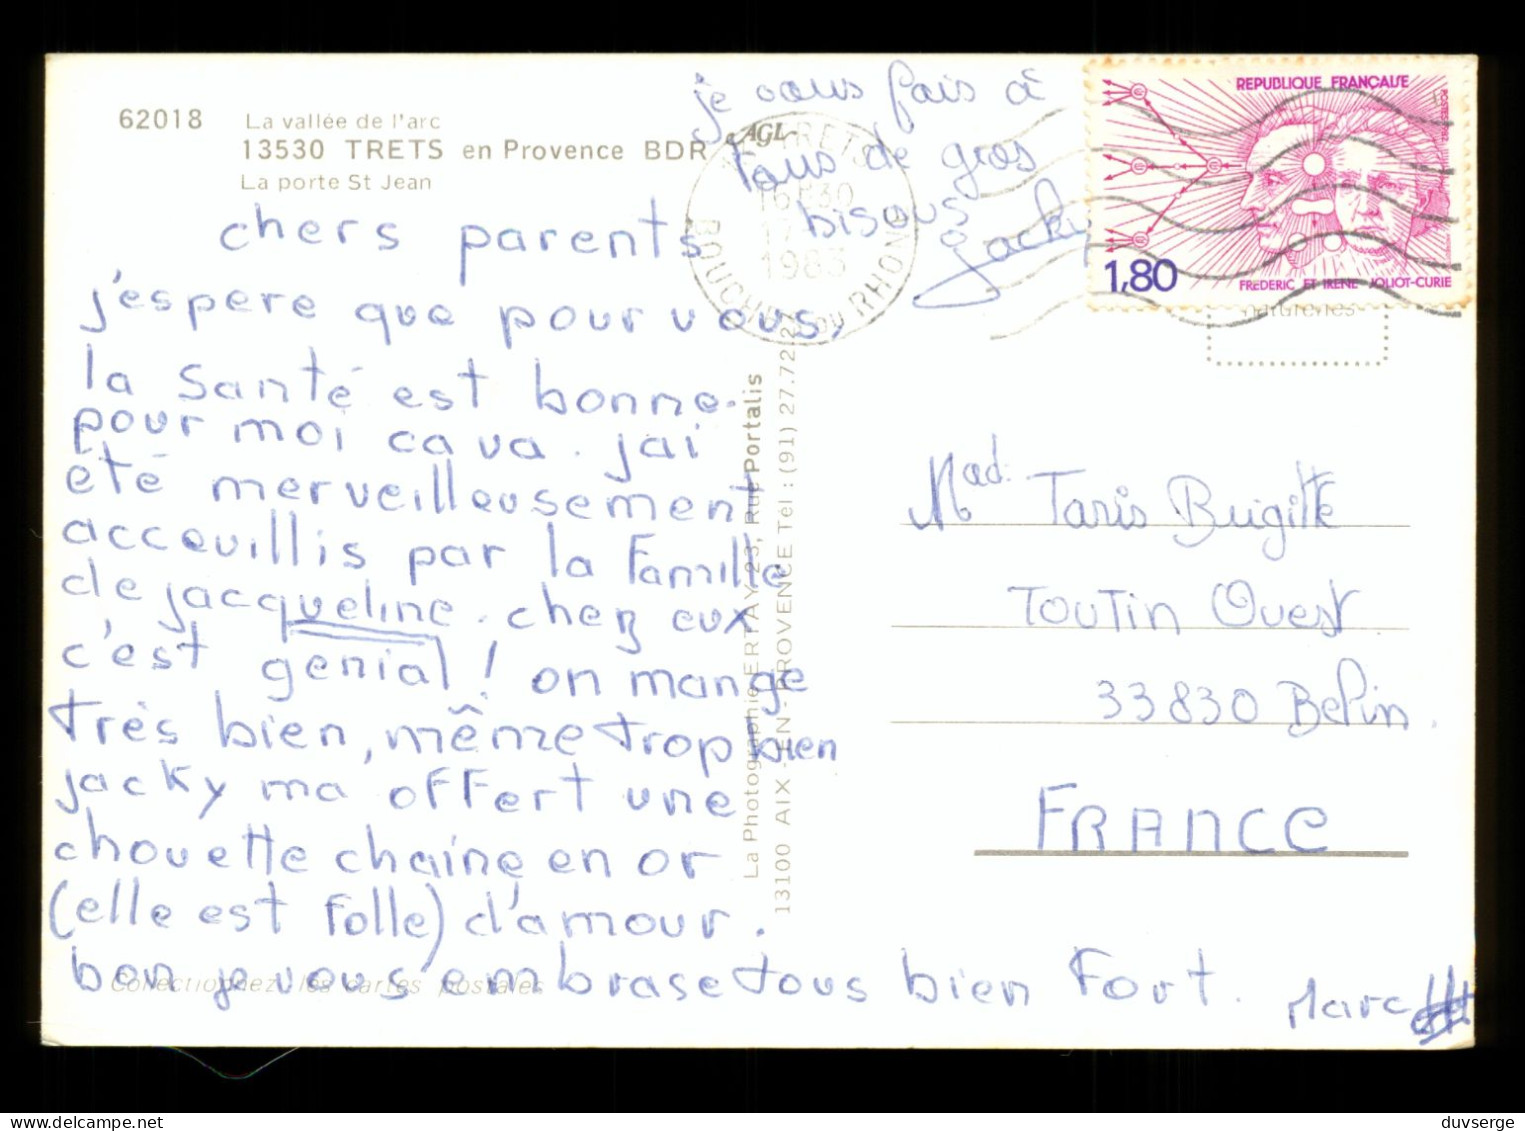 62018
La vallée de l'arc
13530 TRETS en Provence BDR
La porte St Jean
AGL
je vous fais à
tous de gros
bisous
jacky
TRETS
16H30
1983
BOUCHES DU RHONE
REPUBLIQUE FRANÇAISE
1,80
FREDERIC ET IRENE JOLIOT-CURIE
chers parents
j'espere que pour vous,
la santé est bonne.
pour moi ca va. jai
été merveilleusement
acceuillis par la Famille
de jacqueline. chez eux
c'est genial! on mange
très bien, même trop bien
jacky ma offert une
chouette chaine en or
(elle est folle) d'amour.
bon je vous embrase tous bien Fort.
Marc
Collectionnez les cartes postales
La Photographie ERTAY 23, Rue Portalis
13100 AIX - EN - PROVENCE Tél : (91) 27.72.27
Mad: Taris Brigitte
Toutin Ouest
33830 Belin.
FRANCE
duvserge